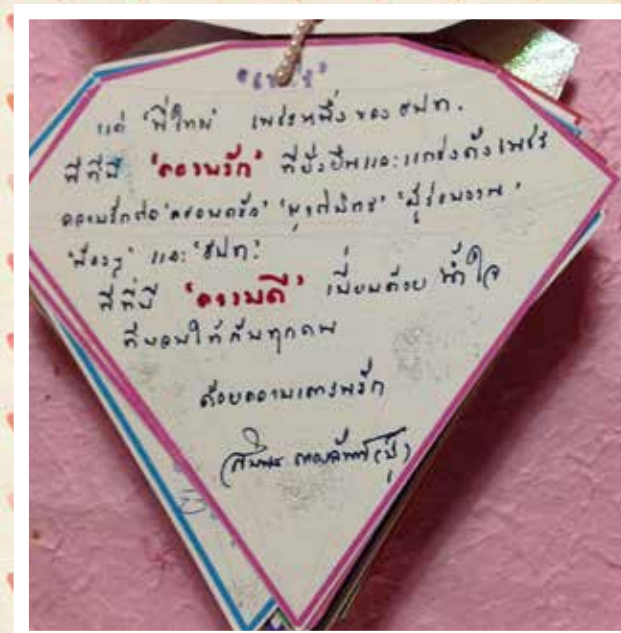 แด่ "พี่ใหม่" เพชรหนึ่งของ สปท.
พี่ที่มี "ความรัก" ที่ยั่งยืนและแกร่งดั่งเพชร
ความรักต่อ "ครอบครัว" "ญาติมิตร" "ผู้ร่วมงาน"
"น้องๆ" และ "สปท."
พี่ที่มี "ความดี" เปี่ยมด้วย น้ำใจ
ที่มอบให้กับทุกคน
ด้วยความเคารพรัก